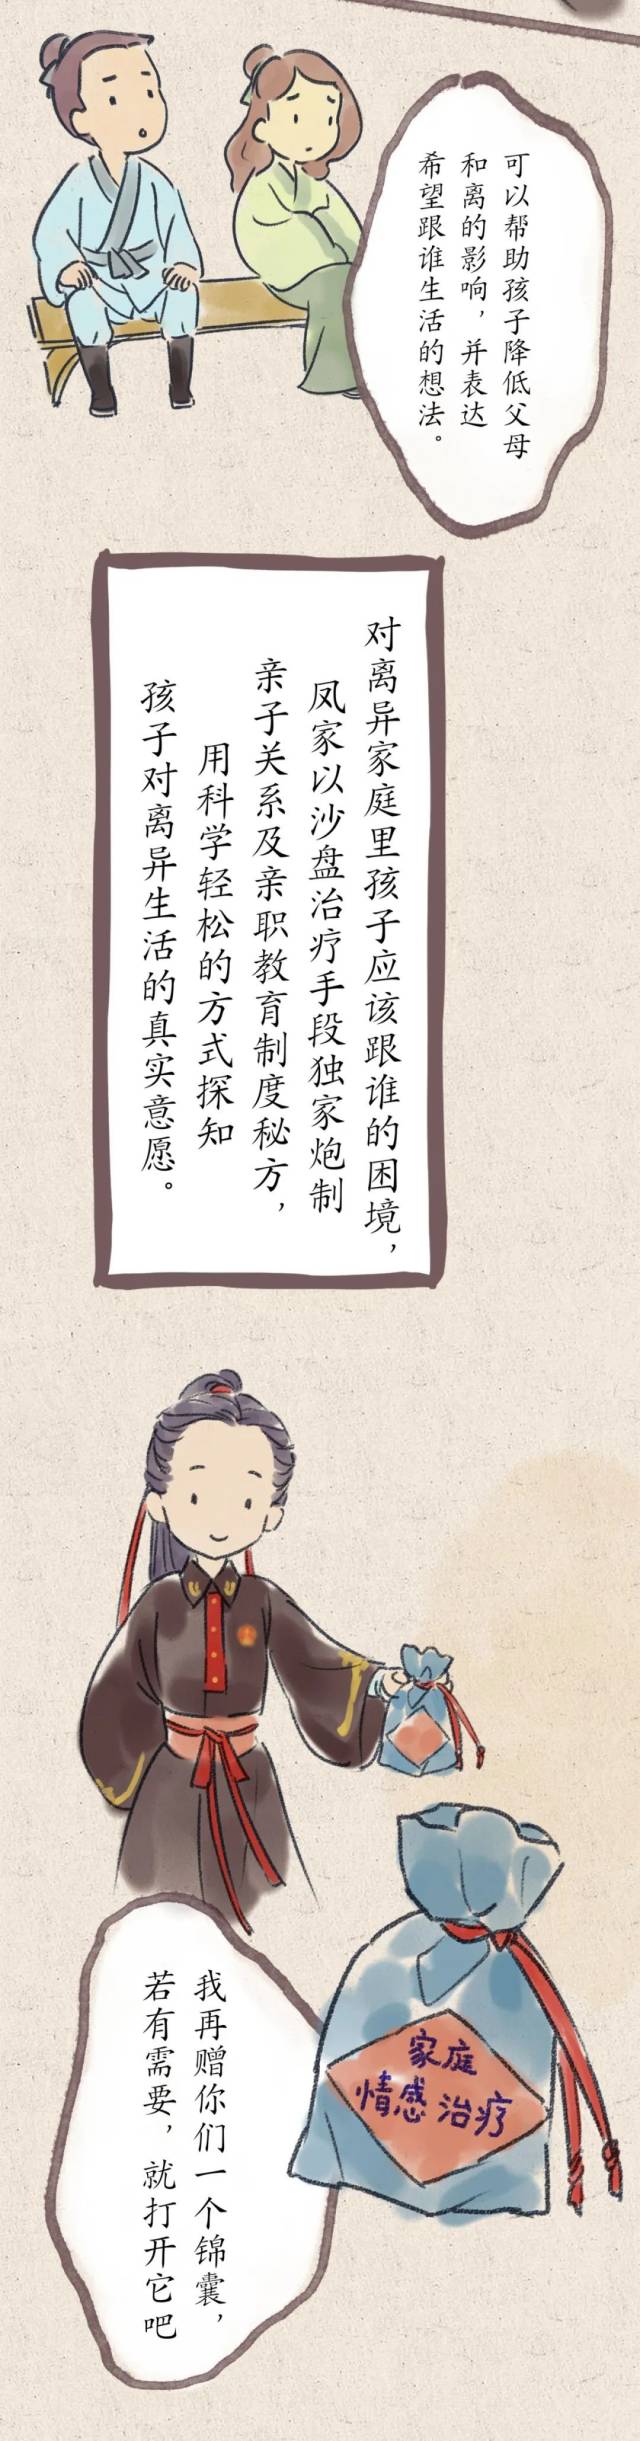 可以帮助孩子降低父母
和离的影响，并表达
希望跟谁生活的想法。
对离异家庭里孩子应该跟谁的困境，
凤家以沙盘治疗手段独家炮制
亲子关系及亲职教育制度秘方，
用科学轻松的方式探知
孩子对离异生活的真实意愿。
家庭
情感治疗
我再赠你们一个锦囊，
若有需要，就打开它吧